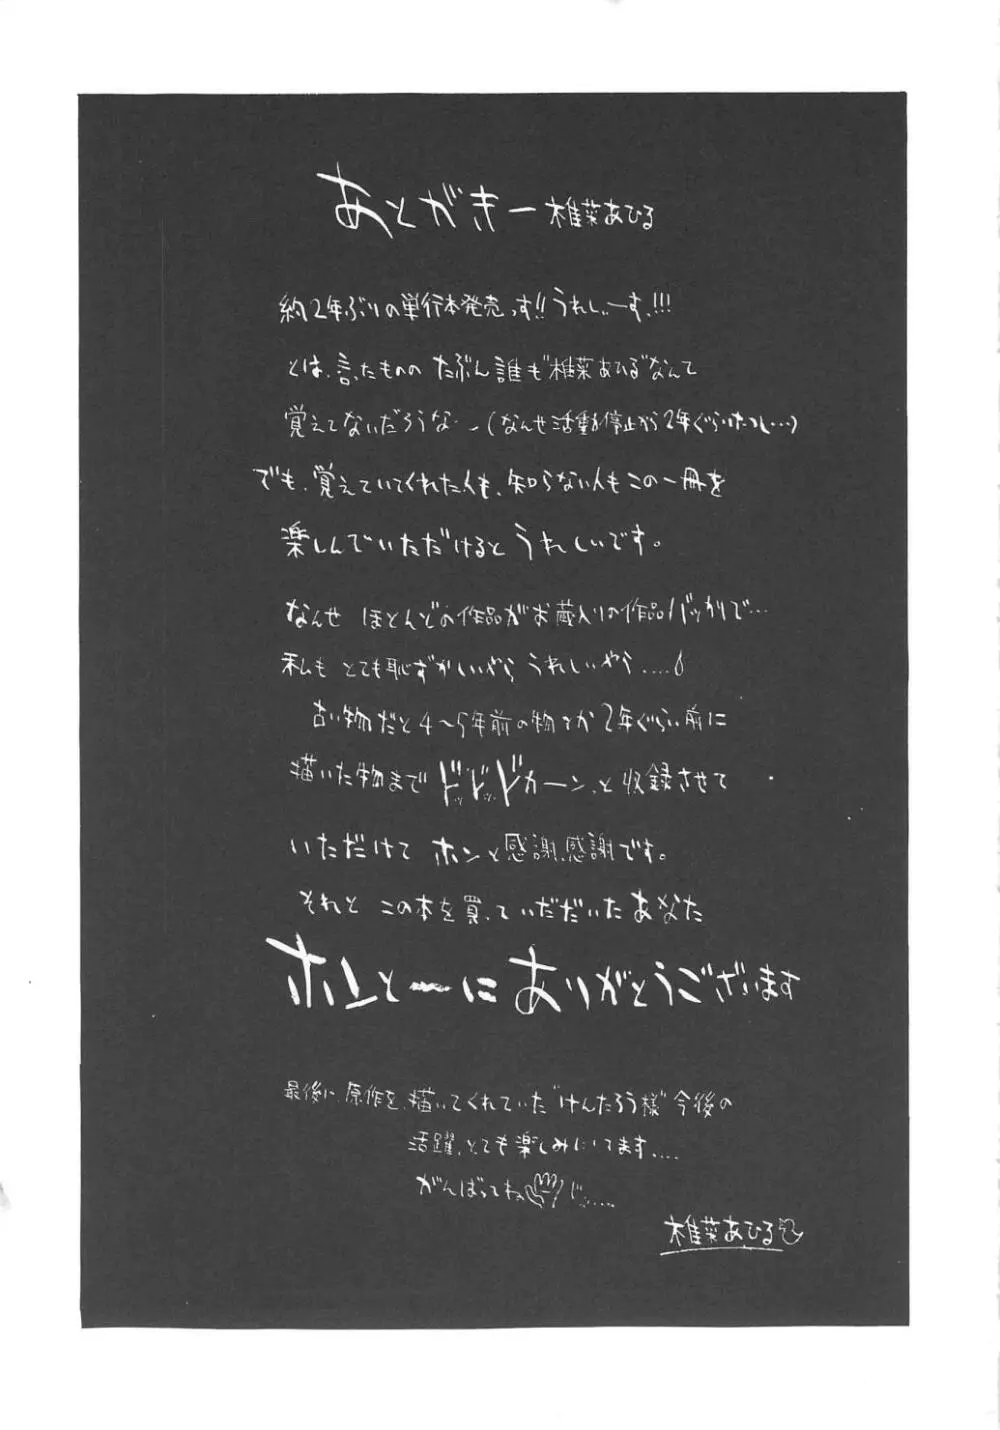 あとがきー椎菜あひる
約2年ぶりの単行本発売っす!!うれしぃーす!!!
とは、言ったものの たぶん誰も"椎菜あひる"なんて
覚えてないだろうな…(なんせ活動停止から2年ぐらいたつし…)
でも、覚えていてくれた人も、知らない人もこの一冊を
楽しんでいただけると うれしいです。
なんせ ほとんどの作品がお蔵入りの作品バッカりで…
私も とても恥ずかしいやら うれしいやら.....
古い物だと4〜5年前の物とか 2年ぐらい前に
描いた物まで ドッドッドカーン、と 収録させて
いただけて ホンと感謝、感謝です。
それと この本を買っていだだいた あなた
ホンとーに ありがとうございます
最後に、原作を、描いてくれていた"けんたろう様"今後の
活躍、とても楽しみにしてます....
がんばってね じ.....
椎菜あひる